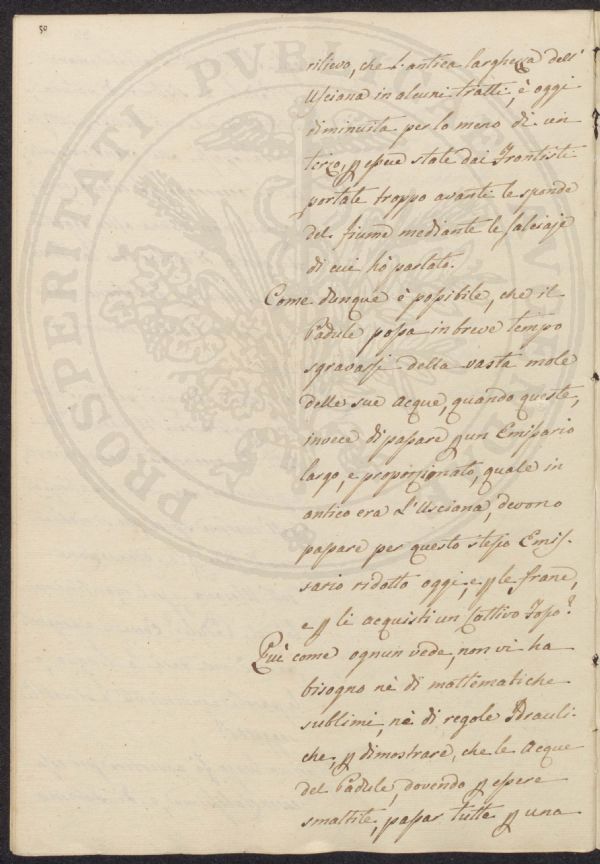 50
rilievo, che l'antica larghezza dell'
Usciana in alcuni tratti, è oggi
diminuita per lo meno di un
terzo, p essere state dai Frontisti
portate troppo avanti le sponde
del fiume mediante le salciaje
di cui hò parlato.
Come dunque è possibile, che il
Padule possa in breve tempo
sgravarsi della vasta mole
delle sue acque, quando queste,
invece di passare p un Emissario
largo, e proporzionato, quale in
antico era L'Usciana, devono
passare per questo stesso Emis-
sario ridotto oggi, e p le frane,
e p li acquisti un Cattivo Fosso?
Quì come ognun vede, non vi ha
bisogno nè di mattematiche
sublimi, nè di regole Idrauli-
che, p dimostrare, che le acque
del Padule, dovendo p essere
smaltite, passar tutte p una
PROSPERITATI PVBLIC